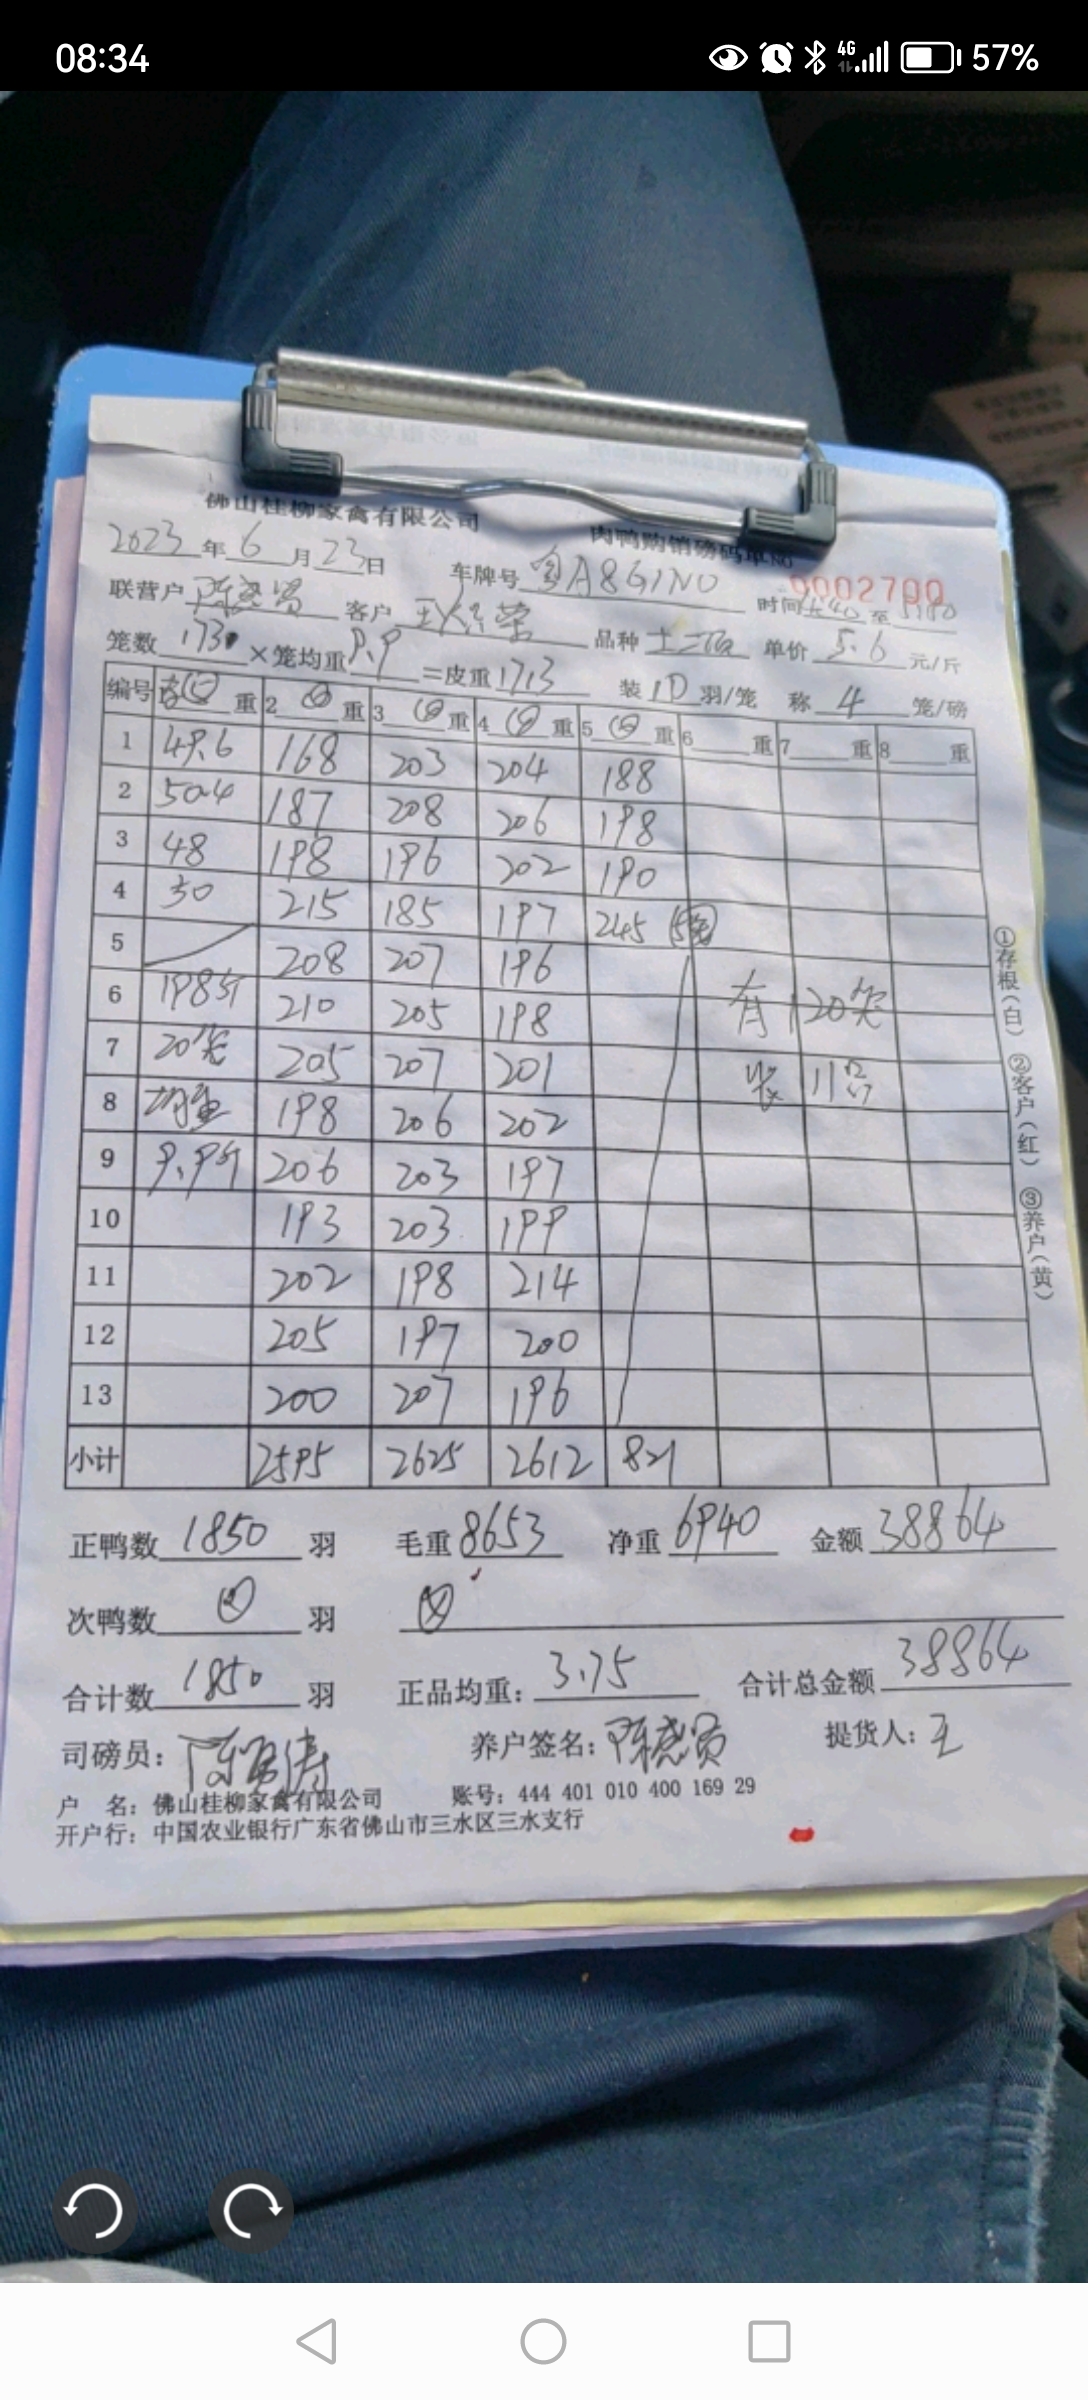 08:34
4G
57%
佛山桂柳家禽有限公司
肉鸭购销磅码单NO
0002790
2023年6月23日 车牌号 粤A8G1N0 时间 至
联营户 客户 荣 品种 单价 5.6 元/斤
笼数 173 ×笼均重 9.9 =皮重 1713 装 10 羽/笼 称 4 笼/磅
编号 重 2 重 3 重 4 重 5 重 6 重 7 重 8 重
1 49.6 168 203 204 188
2 50.4 187 208 206 198
3 48 198 196 202 190
4 50 215 185 197 245
5 208 207 196
6 198斤 210 205 198 有120笼
7 20笼 205 207 201 装11只
8 均重 198 206 202
9 9.9斤 206 203 197
10 193 203 199
11 202 198 214
12 205 197 200
13 200 207 196
小计 2595 2625 2612 821
①存根(白) ②客户(红) ③养户(黄)
正鸭数 1850 羽 毛重 8653 净重 6940 金额 38864
次鸭数 羽
合计数 1850 羽 正品均重: 3.75 合计总金额 38864
司磅员: 养户签名: 提货人: 王
户 名: 佛山桂柳家禽有限公司 账号: 444 401 010 400 169 29
开户行: 中国农业银行广东省佛山市三水区三水支行